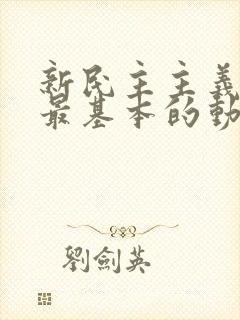 新民主主義
最基本的動
劉劍英